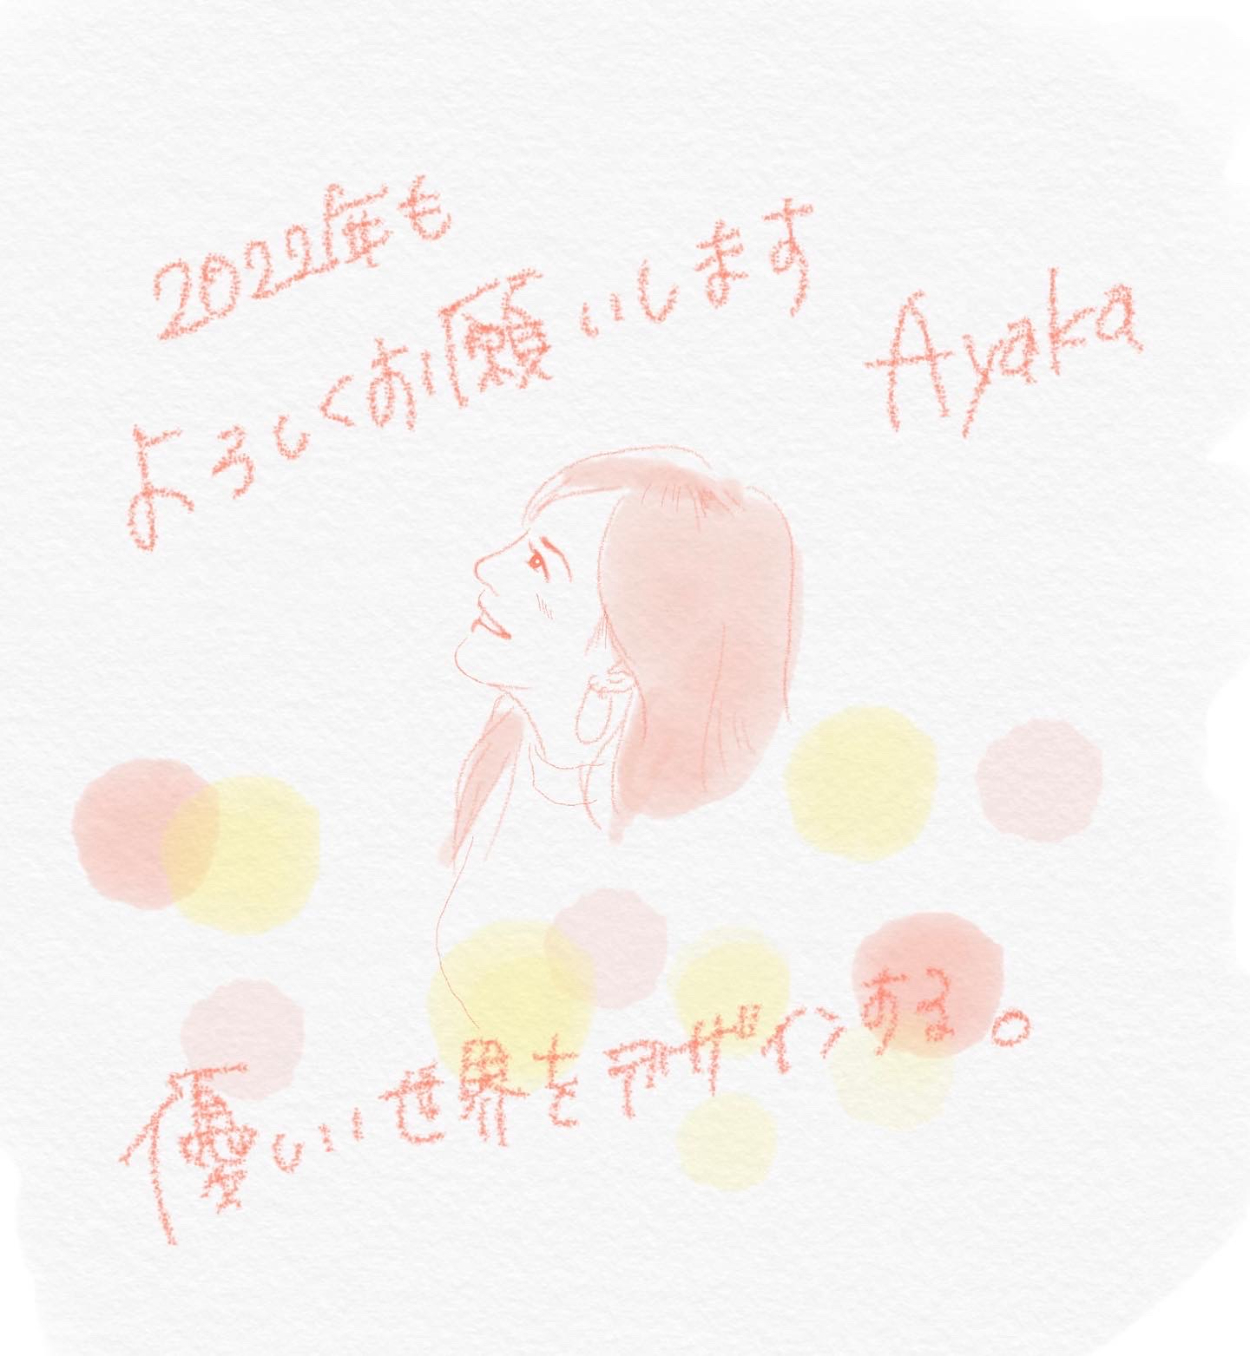 2022年も
よろしくお願いします
Ayaka
優しい世界をデザインある。